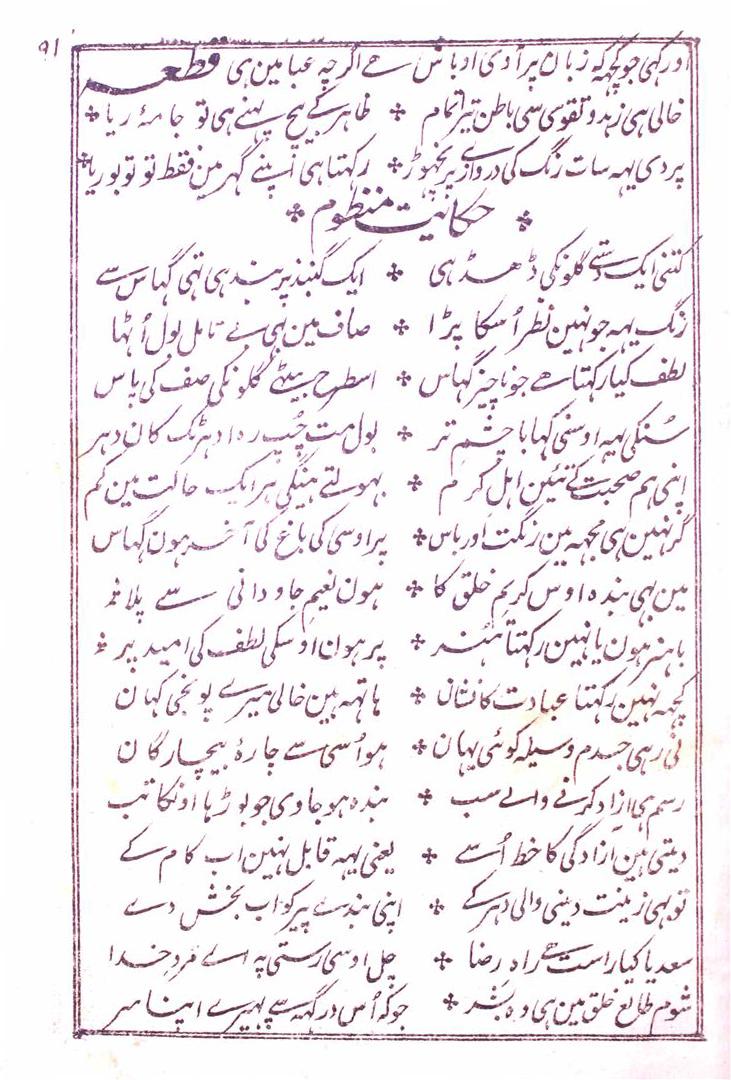 ٩١
اور کہی جو کچھہ کہ زبان پر آوی اوباش ہے اگرچہ عبا مین ہی قطعہ
خالی ہی زہد و تقوی سی باطن تیرا تمام ❖ ظاہر کے بیچ پہنے ہی تو جامۂ ریا ❖
پردی یہہ سات رنگ کی دروازے پر نچھوڑ ❖ رکھتا ہی اپنے گہر مین فقط تو تو بوریا ❖
❖ حکایت منظوم ❖
کتنی ایک دستے گلونکی ڈھڈ ہی ❖ ایک گنبذ پر بندہی تہی گہاس سے
رنگ یہہ جو نہین نظر اُسکا پڑا ❖ صاف مین بہی بے تامل بول اُٹہا
لطف کیا رکہتا ہے جو ناچیز گہاس ❖ اسطرح بیٹہے گلونکی صف کی پاس
سُنکی یہہ اوسنی کہا با چشمِ تر ❖ بول مت چُپ رہ ادہر ٹک کان دہر
اپنی ہم صحبت کے تئین اہل کرم ❖ بہولتے ہینگی ہر ایک حالت مین کم
گر نہین ہی مجہہ مین رنگت اور باس ❖ پر اوسی کی باغ کی آخر ہون گہاس
مین بہی بندہ اوس کریم خلق کا ❖ ہون نعیم جاودانی سے پلا
باہنر ہون یا نہین رکہتا ہنر ❖ پر ہون اوسکی لطف کی امید پر
کچہہ نہین رکہتا عبادت کا نشان ❖ ہاتہہ ہین خالی میرے پونجی کہان
نی رہی جسدم وسیلہ کوئی یہان ❖ ہو اُسی سے چارۂ بیچارگان
رسم ہی آزاد کرنے والے سب ❖ بندہ ہو جاوی جو بوڑہا اونکا تب
دیتی ہین آزادگی کا خط اُسے ❖ یعنی یہہ قابل نہین اب کام کے
تو بہی زینت دینی والی دہر کے ❖ اپنی بندے پیر کو اب بخش دے
سعدیا کیا راست ہے راہِ رضا ❖ چل اوسی رستی پہ اے مردِ خدا
شوم طالع خلق مین ہی وہ بشر ❖ جو کہ اُس درگہہ سے پہیرے اپنا سر